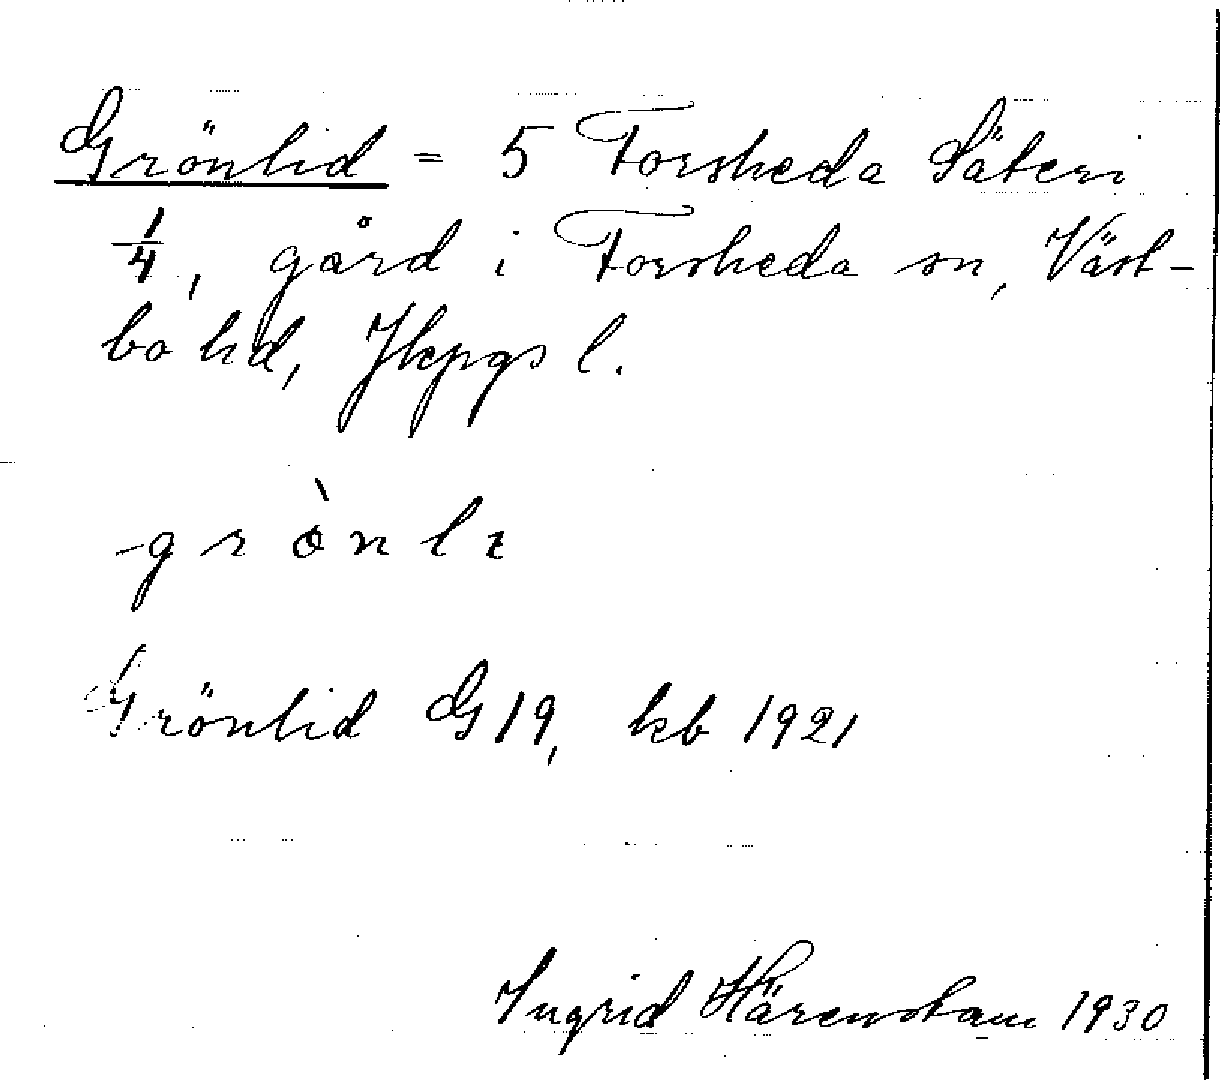 Grönlid = 5 Forsheda Säteri
1/4, gård i Forsheda sn, Väst-
bo hd, Jkpgs l.
-grònlɩ
Grönlid G19, kb 1921
Ingrid Härenstam 1930